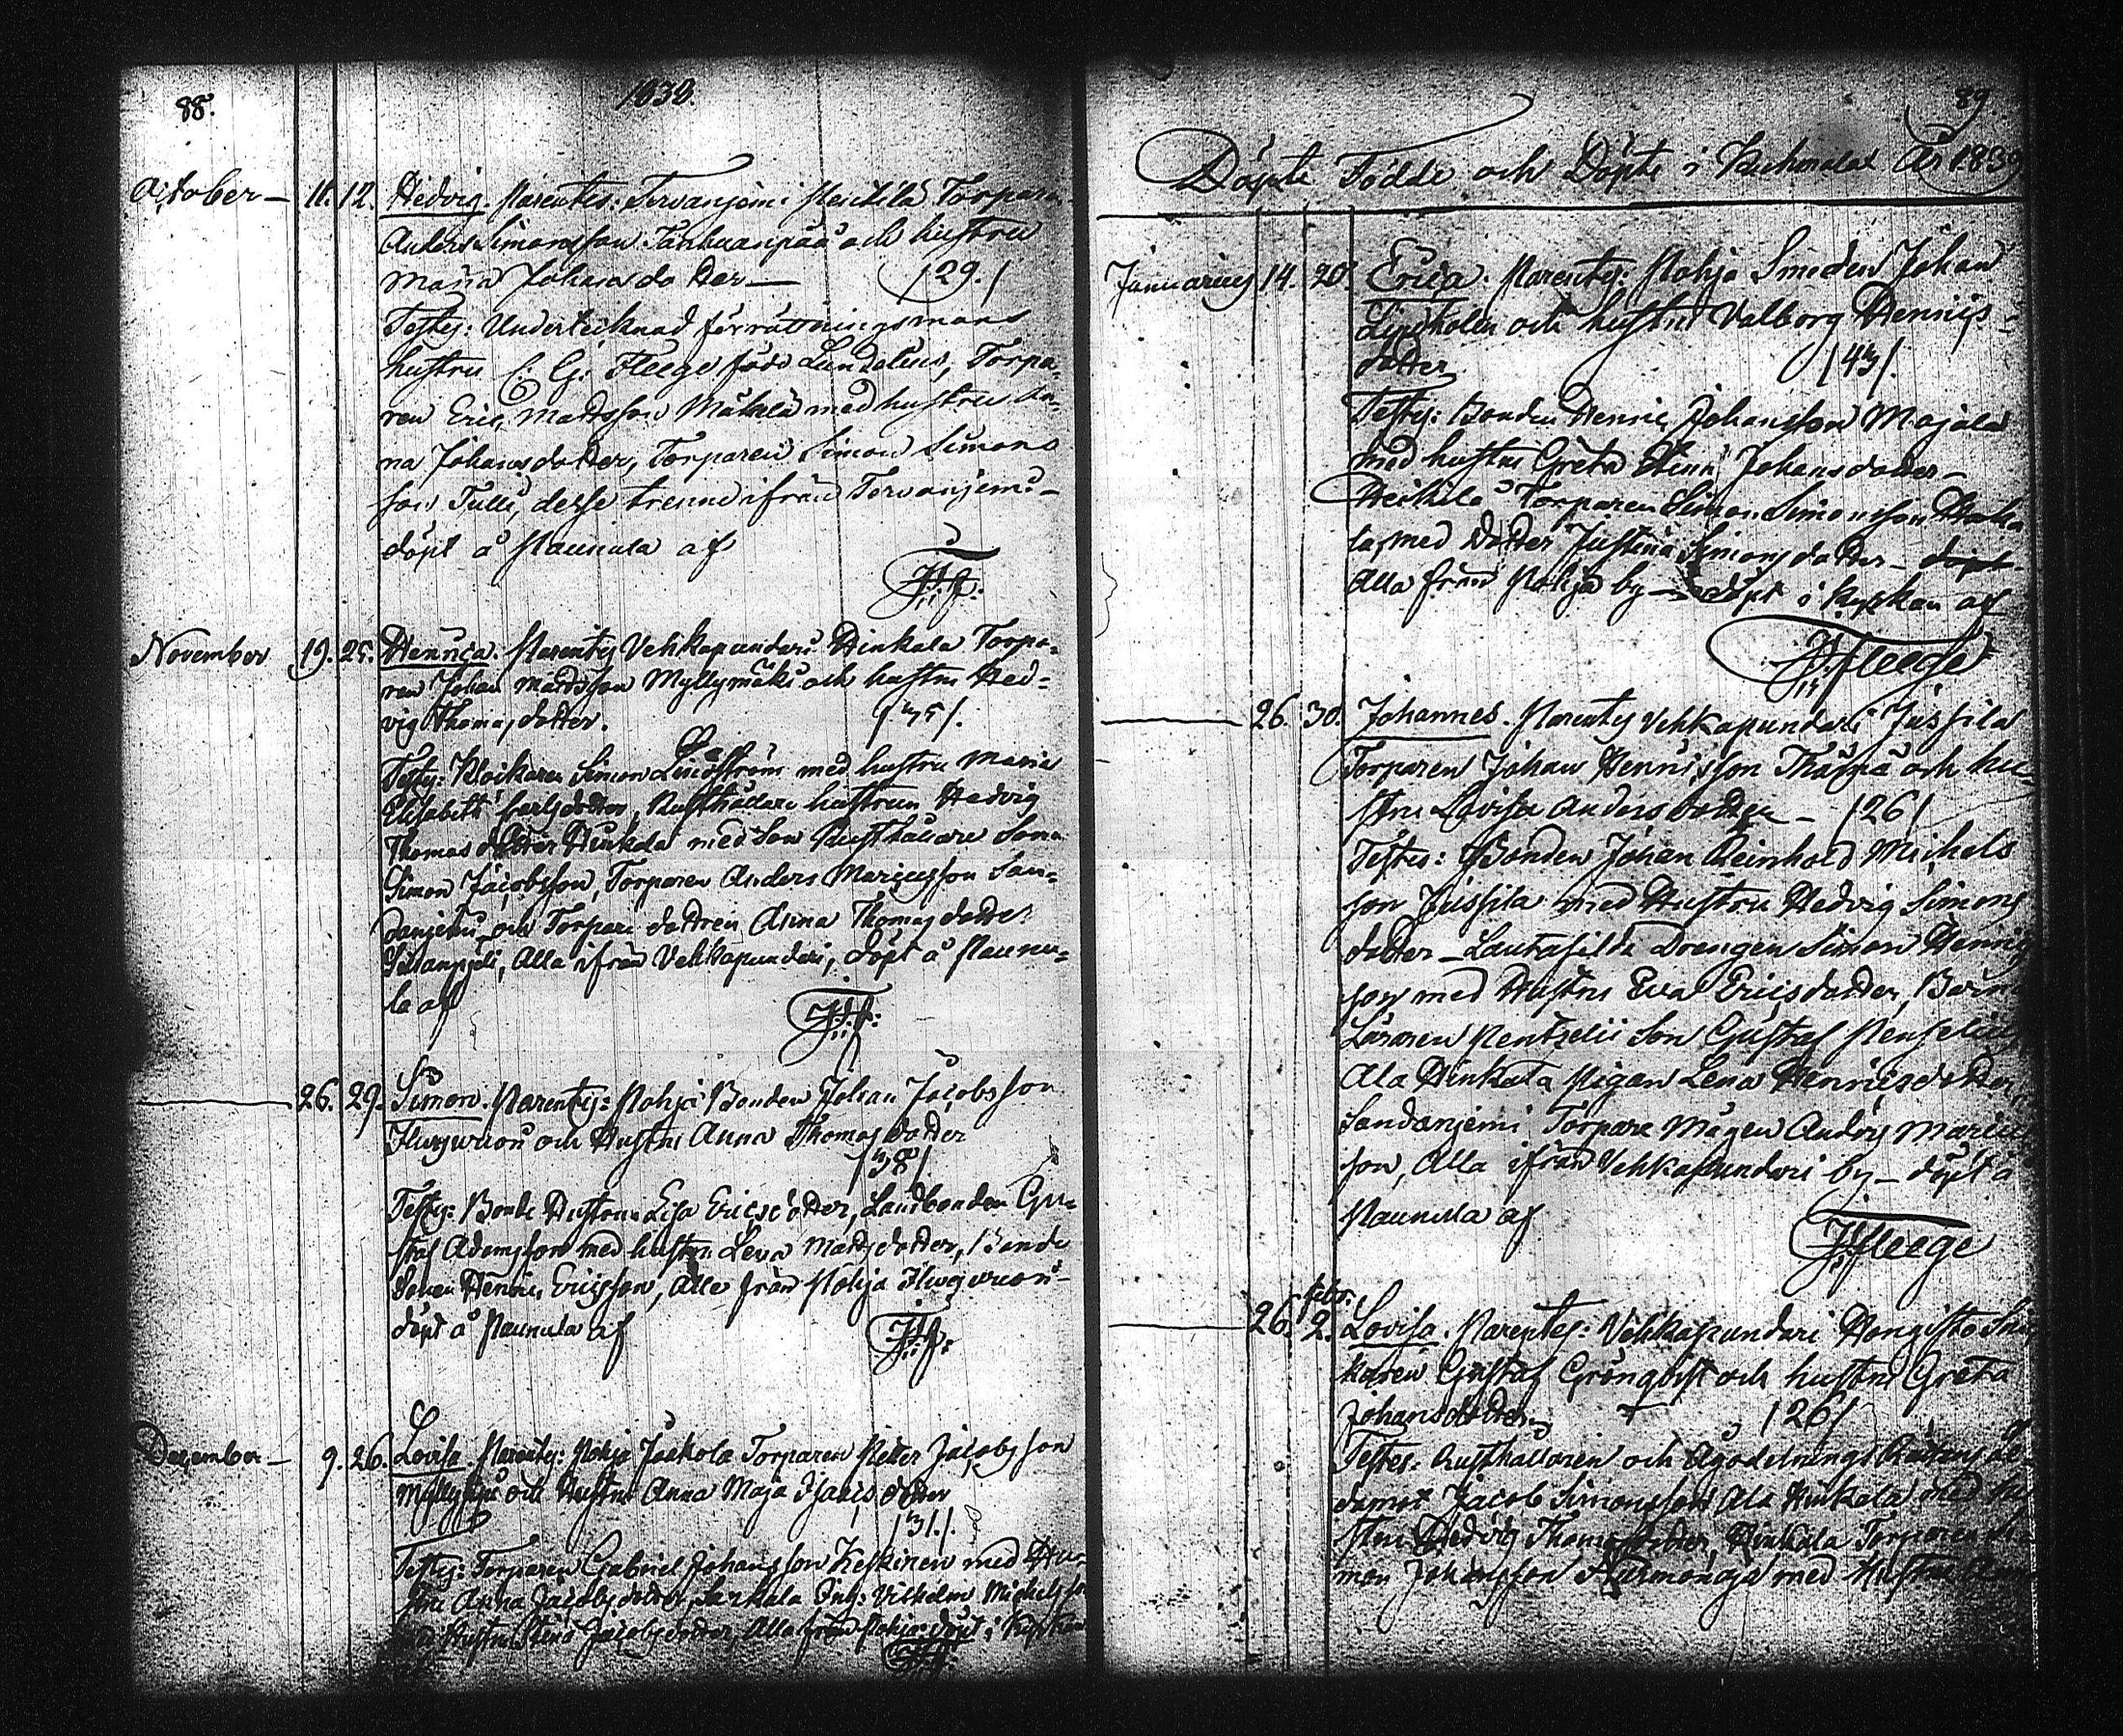 88.
1838.
October — 11. 12. Hedvig. Parentes: Tervanjemi Heikilä Torparen
Anders Simonsson Tanhuanpää och hustru
Maria Johansdotter — /29./
Testes: Undertecknad förrättningsmans
hustru C: G: Fleege född Lundelius, Torpa-
ren Eric Mattsson Mäkelä med hustru An-
na Johansdotter, Torparen Simon Simons
son Tulli, desse trenne ifrån Tervanjemi —
döpt å Paunula af
J. F.
November 19. 25. Henrica. Parentes Vehkapundari Hinkala Torpa-
ren Johan Mattsson Myllymäki och hustru Hed-
vig Thomasdotter. /35/.
Testes: Klockaren Simon Lindström med hustru Maria
Elisabeth Carlsdotter, Rusthållare hustrun Hedvig
Thomasdotter Hinkala med Son Rusthållare Sonen
Simon Jacobsson, Torparen Anders Maricusson San-
danjemi och Torpare dottren Anna Thomasdotter
alla ifrån Vehkapundari, döpt å Paunu-
la af
J. F.
26. 29. Simon. Parentes: Pohja Bonden Johan Jacobsson
och Hustru Anna Thomasdotter
/38/
Testes: Bonde Hustrun Lisa Ericsdotter, Landbonden Gu-
staf Adamsson med hustru Lena Mattsdotter, Bonde
Sonen Henric Ericsson, Alle från Pohja
döpt å Paunula af
J. F.
December — 9. 26. Lovisa. Parentes: Pohja Jaakola Torparen Petter Jacobsson
och Hustru Anna Maja Isacsdotter
/31./
Testes: Torparen Gabriel Johansson Keskinen med Hu-
stru Anna Jacobsdotter, Inh: Vilhelm Michelsson
med Hustru Stina Jacobsdotter, Alla från Pohja döpt i Kyrkan
89.
Döpte Födde och Döpte i Kuhmalax År 1839
Januarius 14. 20. Erica. Parentes: Pohja Smeden Johan
Lindholm och hustru Valborg Henrics-
dotter /43/.
Testes: Bonden Henric Johansson Majala
med hustru Greta Stina Johansdotter —
Heikilä Torparen Simon Simonsson
la, med Dotter Justina Simonsdotter — döpt
Alla från Pohja by — döpt i Kyrkan af
J. Fleege
26. 30. Johannes. Parentes Vehkapundari Jussila
Torparen Johan Henricsson och hu-
stru Lovisa Andersdotter — /26/
Testes: Bonden Johan Reinhold Michels
son Jussila med Hustru Hedvig Simons
dotter — Lautasilda Drengen Simon Henrics
son med Hustru Eva Ericsdotter, Barn
Läraren Son Gustaf
Ala Hinkala Pigan Lena Henricsdotter,
Sandanjemi Torpare Mågen Anders Maricus
son, Alla ifrån Vehkapundari by — döpt å
Paunula af
J. Fleege
26. febr. 2. Lovisa. Parentes: Vehkapundari Hongisto
Gustaf Grönqvist och hustru Greta
Johansdotter /26/
Testes: Rusthållaren och Ägodelnings Rättens Le-
damot Jacob Simonsson Ala Hinkala med hu
stru Hedvig Thomasdotter, Hinkala Torparen Si
mon Johansson med Hustru